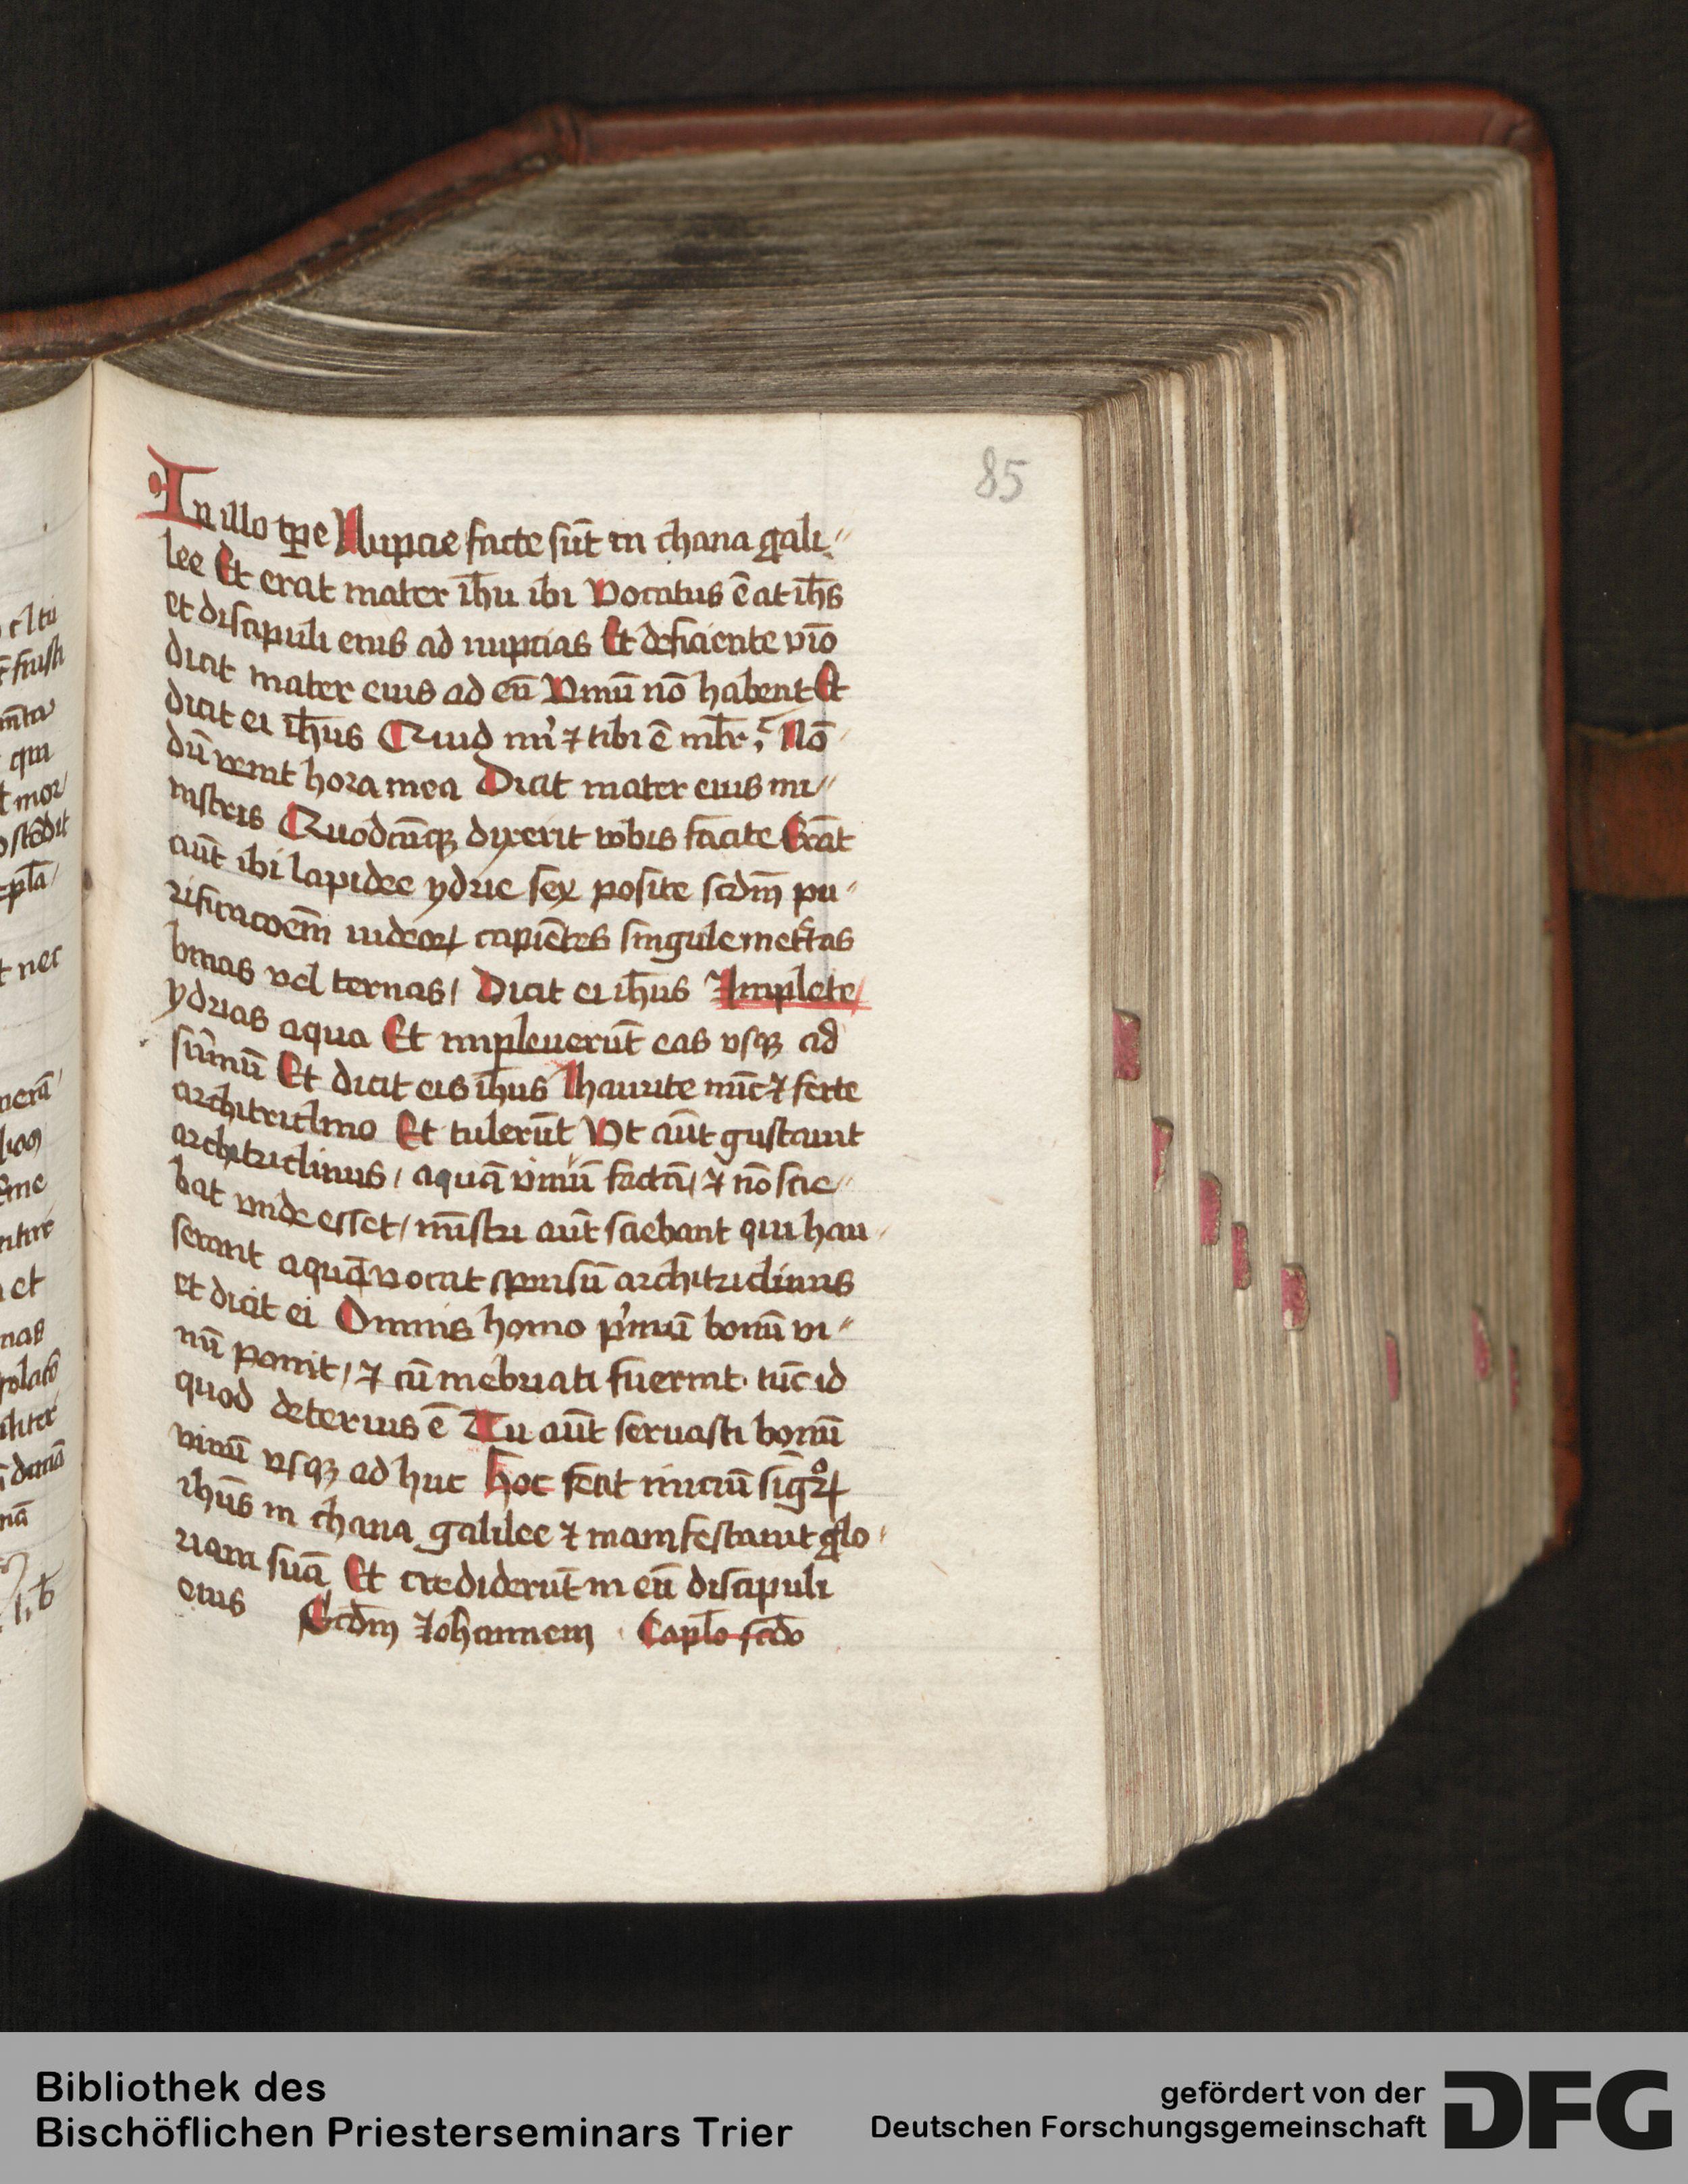 85
In illo tp̄e Nupcie facte sūt in chana gali⸗
lee Et erat mater ih̄u ibi Vocatus ē at ih̄s
et discipuli eius ad nupcias Et deficiente vīo
dicit mater eius ad eū Vinū nō habent Et
dicit ei ih̄us Quid mi' ⁊ tibi ē ml̄r Nō
dū venit hora mea Dicit mater eius mi⸗
nistris Quodcūqꝫ dixerit vobis facite Erāt
aūt ibi lapidee ydrie sex posite scdm̄ pu⸗
rificacoēm iudeoꝝ capiētes singule met̄tas
binas vel ternas / Dicit ei ih̄us Implete
ydrias aqua Et impleuerūt eas vsqꝫ ad
sūmū Et dicit eis ih̄us Haurite nūc ⁊ ferte
architriclino Et tulerūt Vt aūt gustauit
architriclinus / aquā vinū factā / ⁊ nō scie⸗
bat vnde esset / mīstri aūt sciebant qui hau⸗
serant aquā vocat sponsū architriclinus
et dicit ei Omnis homo p'mū bonū vi⸗
nū ponit / ⁊ cū inebriati fuerint tūc id
quod deterius ē Tu aūt seruasti bonū
vinū vsqꝫ ad huc Hoc fecit iniciū sigͦꝝ
ihūs in chana galilee ⁊ manifestauit glo⸗
riam suā Et crediderūt in eū discipuli
eius Scdm̄ Johannem Capl̄o scdo
Bibliothek des
Bischöflichen Priesterseminars Trier
gefördert von der
Deutschen Forschungsgemeinschaft
DFG